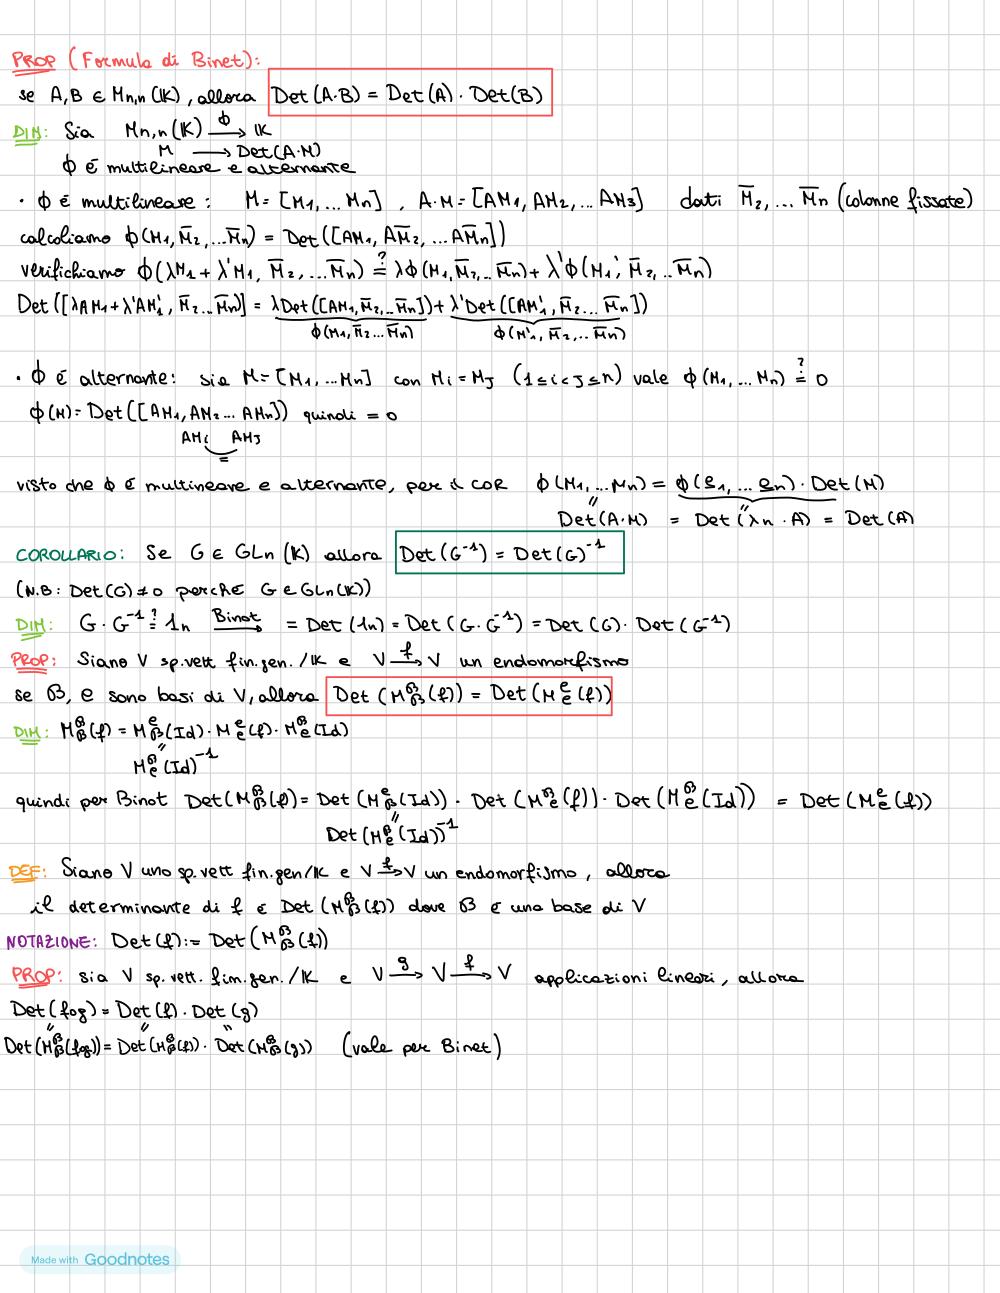 PROP (Formula di Binet):
se A,B ∈ Mn,n (K), allora Det(A·B) = Det(A) · Det(B)
DIM: Sia Mn,n(K) —ϕ→ K
M → Det(A·M)
ϕ è multilineare e alternante
· ϕ è multilineare: M = [M1,... Mn] , A·M = [AM1, AM2, ... AM3] dati M̅2, ... M̅n (colonne fissate)
calcoliamo ϕ(M1, M̅2, ... M̅n) = Det([AM1, AM̅2, ... AM̅n])
verifichiamo ϕ(λM1 + λ'M1, M̅2, ... M̅n) =? λϕ(M1, M̅2, ... M̅n) + λ'ϕ(M1', M̅2, ... M̅n)
Det([λAM1+λ'AM1', M̅2 ... M̅n)] = λDet([AM1, M̅2, ... M̅n]) + λ'Det([AM1', M̅2 ... M̅n])
ϕ(M1, M̅2 ... M̅n) ϕ(M1', M̅2, ... M̅n)
· ϕ è alternante: sia M = [M1, ... Mn] con Mi = MJ (1≤i<J≤n) vale ϕ(M1, ... Mn) =? 0
ϕ(M) = Det([AM1, AM2 ... AMn]) quindi = 0
AMi AMJ
=
visto che ϕ è multineare e alternante, per il COR ϕ(M1, ... Mn) = ϕ(e1, ... en) · Det(M)
Det(A·M) = Det(λn · A) = Det(A)
COROLLARIO: Se G ∈ GLn (K) allora Det(G⁻¹) = Det(G)⁻¹
(N.B: Det(G)≠0 perché G∈GLn(K))
DIM: G · G⁻¹ =? 1n —Binet→ = Det(1n) = Det(G·G⁻¹) = Det(G) · Det(G⁻¹)
PROP: Siano V sp.vett fin.gen. /K e V —f→ V un endomorfismo
se B, C sono basi di V, allora Det(M^B_B(f)) = Det(M^C_C(f))
DIM: M^B_B(f) = M^C_B(Id) · M^C_C(f) · M^B_C(Id)
M^B_C(Id)⁻¹
quindi per Binet Det(M^B_B(f) = Det(M^C_B(Id)) · Det(M^C_C(f)) · Det(M^B_C(Id)) = Det(M^C_C(f))
Det(M^B_C(Id))⁻¹
DEF: Siano V uno sp.vett fin.gen/K e V —f→ V un endomorfismo, allora
il determinante di f è Det(M^B_B(f)) dove B è una base di V
NOTAZIONE: Det(f) := Det(M^B_B(f))
PROP: sia V sp.vett. fin.gen. /K e V —g→ V —f→ V applicazioni lineari, allora
Det(f∘g) = Det(f) · Det(g)
Det(M^B_B(f∘g)) = Det(M^B_B(f)) · Det(M^B_B(g)) (vale per Binet)
Made with Goodnotes